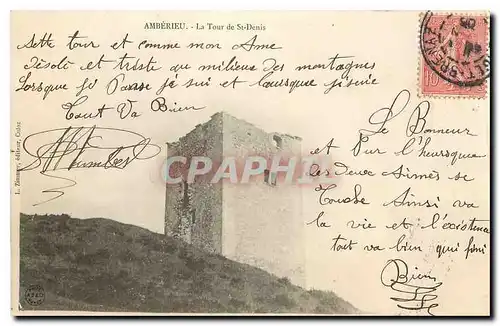 AMBÉRIEU. - La Tour de St-Denis
Sette tour et comme mon Ame
désolé et triste au milieu des montagnes
Lorsque je Passe je sui et Lorsque
Tout Va Bien
Le Bonneur
et Pur l'heurs que
les deux Aimés se
Touche Ainsi va
la vie et l'existence
tout va bien qui fini
Bien
L. Zimmer, éditeur
CPARAMA